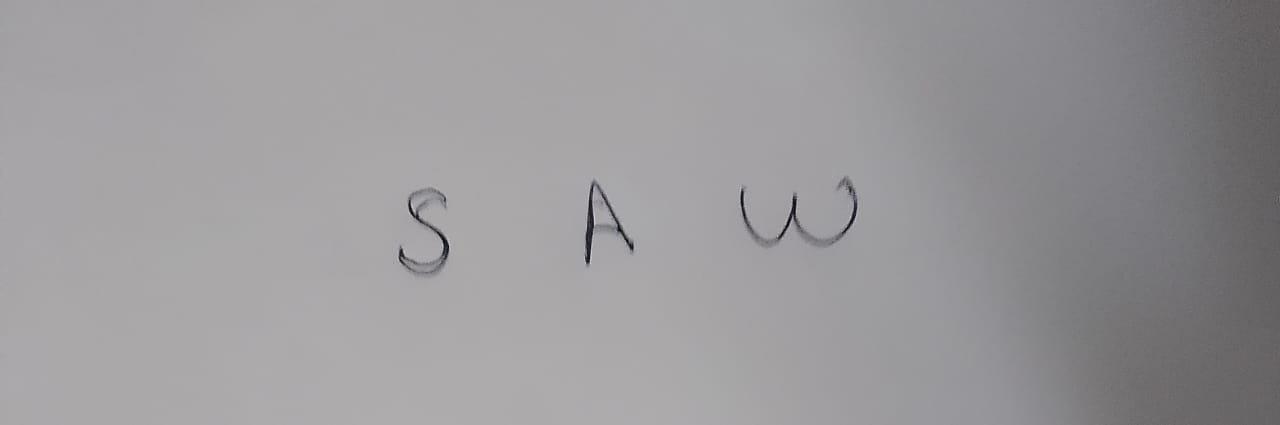 S A W